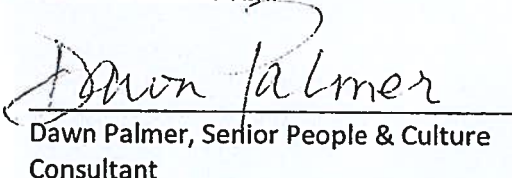 Dawn Palmer
Dawn Palmer, Senior People & Culture
Consultant